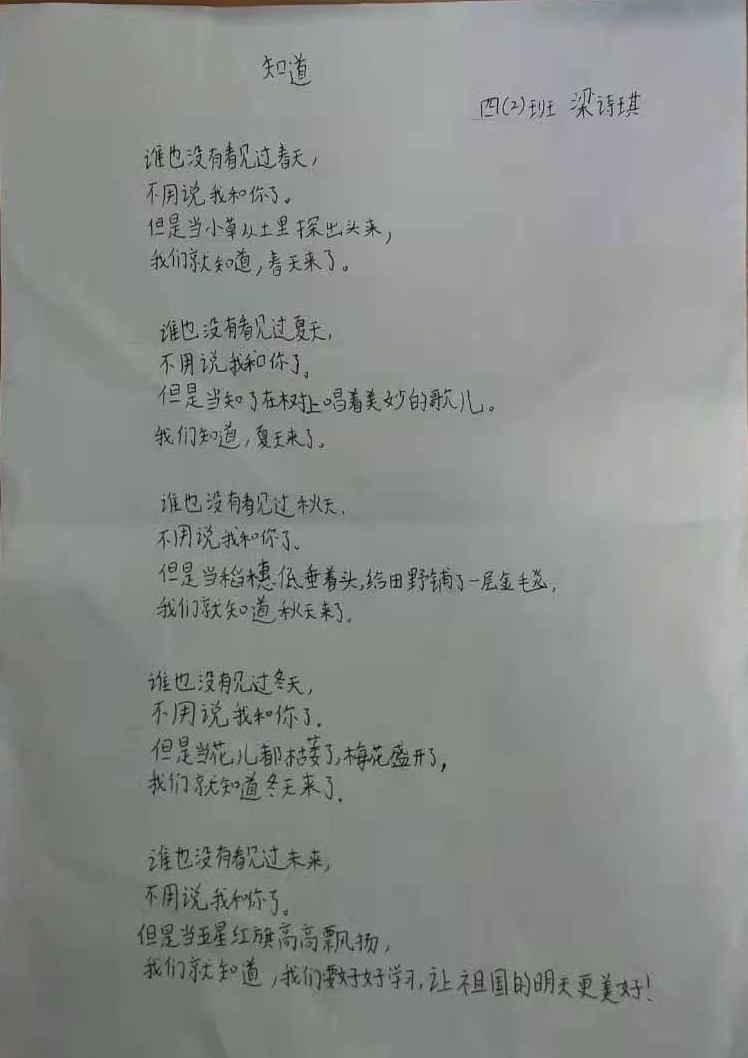 知道
四(2)班 梁诗琪
谁也没有看见过春天，
不用说我和你了。
但是当小草从土里探出头来，
我们就知道，春天来了。
谁也没有看见过夏天，
不用说我和你了。
但是当知了在树上唱着美妙的歌儿。
我们知道，夏天来了。
谁也没有看见过秋天，
不用说我和你了。
但是当稻穗低垂着头，给田野铺了一层金毛毯，
我们就知道秋天来了。
谁也没有见过冬天，
不用说我和你了．
但是当花儿都枯萎了，梅花盛开了，
我们就知道冬天来了．
谁也没有看见过未来，
不用说我和你了。
但是当五星红旗高高飘扬，
我们就知道，我们要好好学习，让祖国的明天更美好！